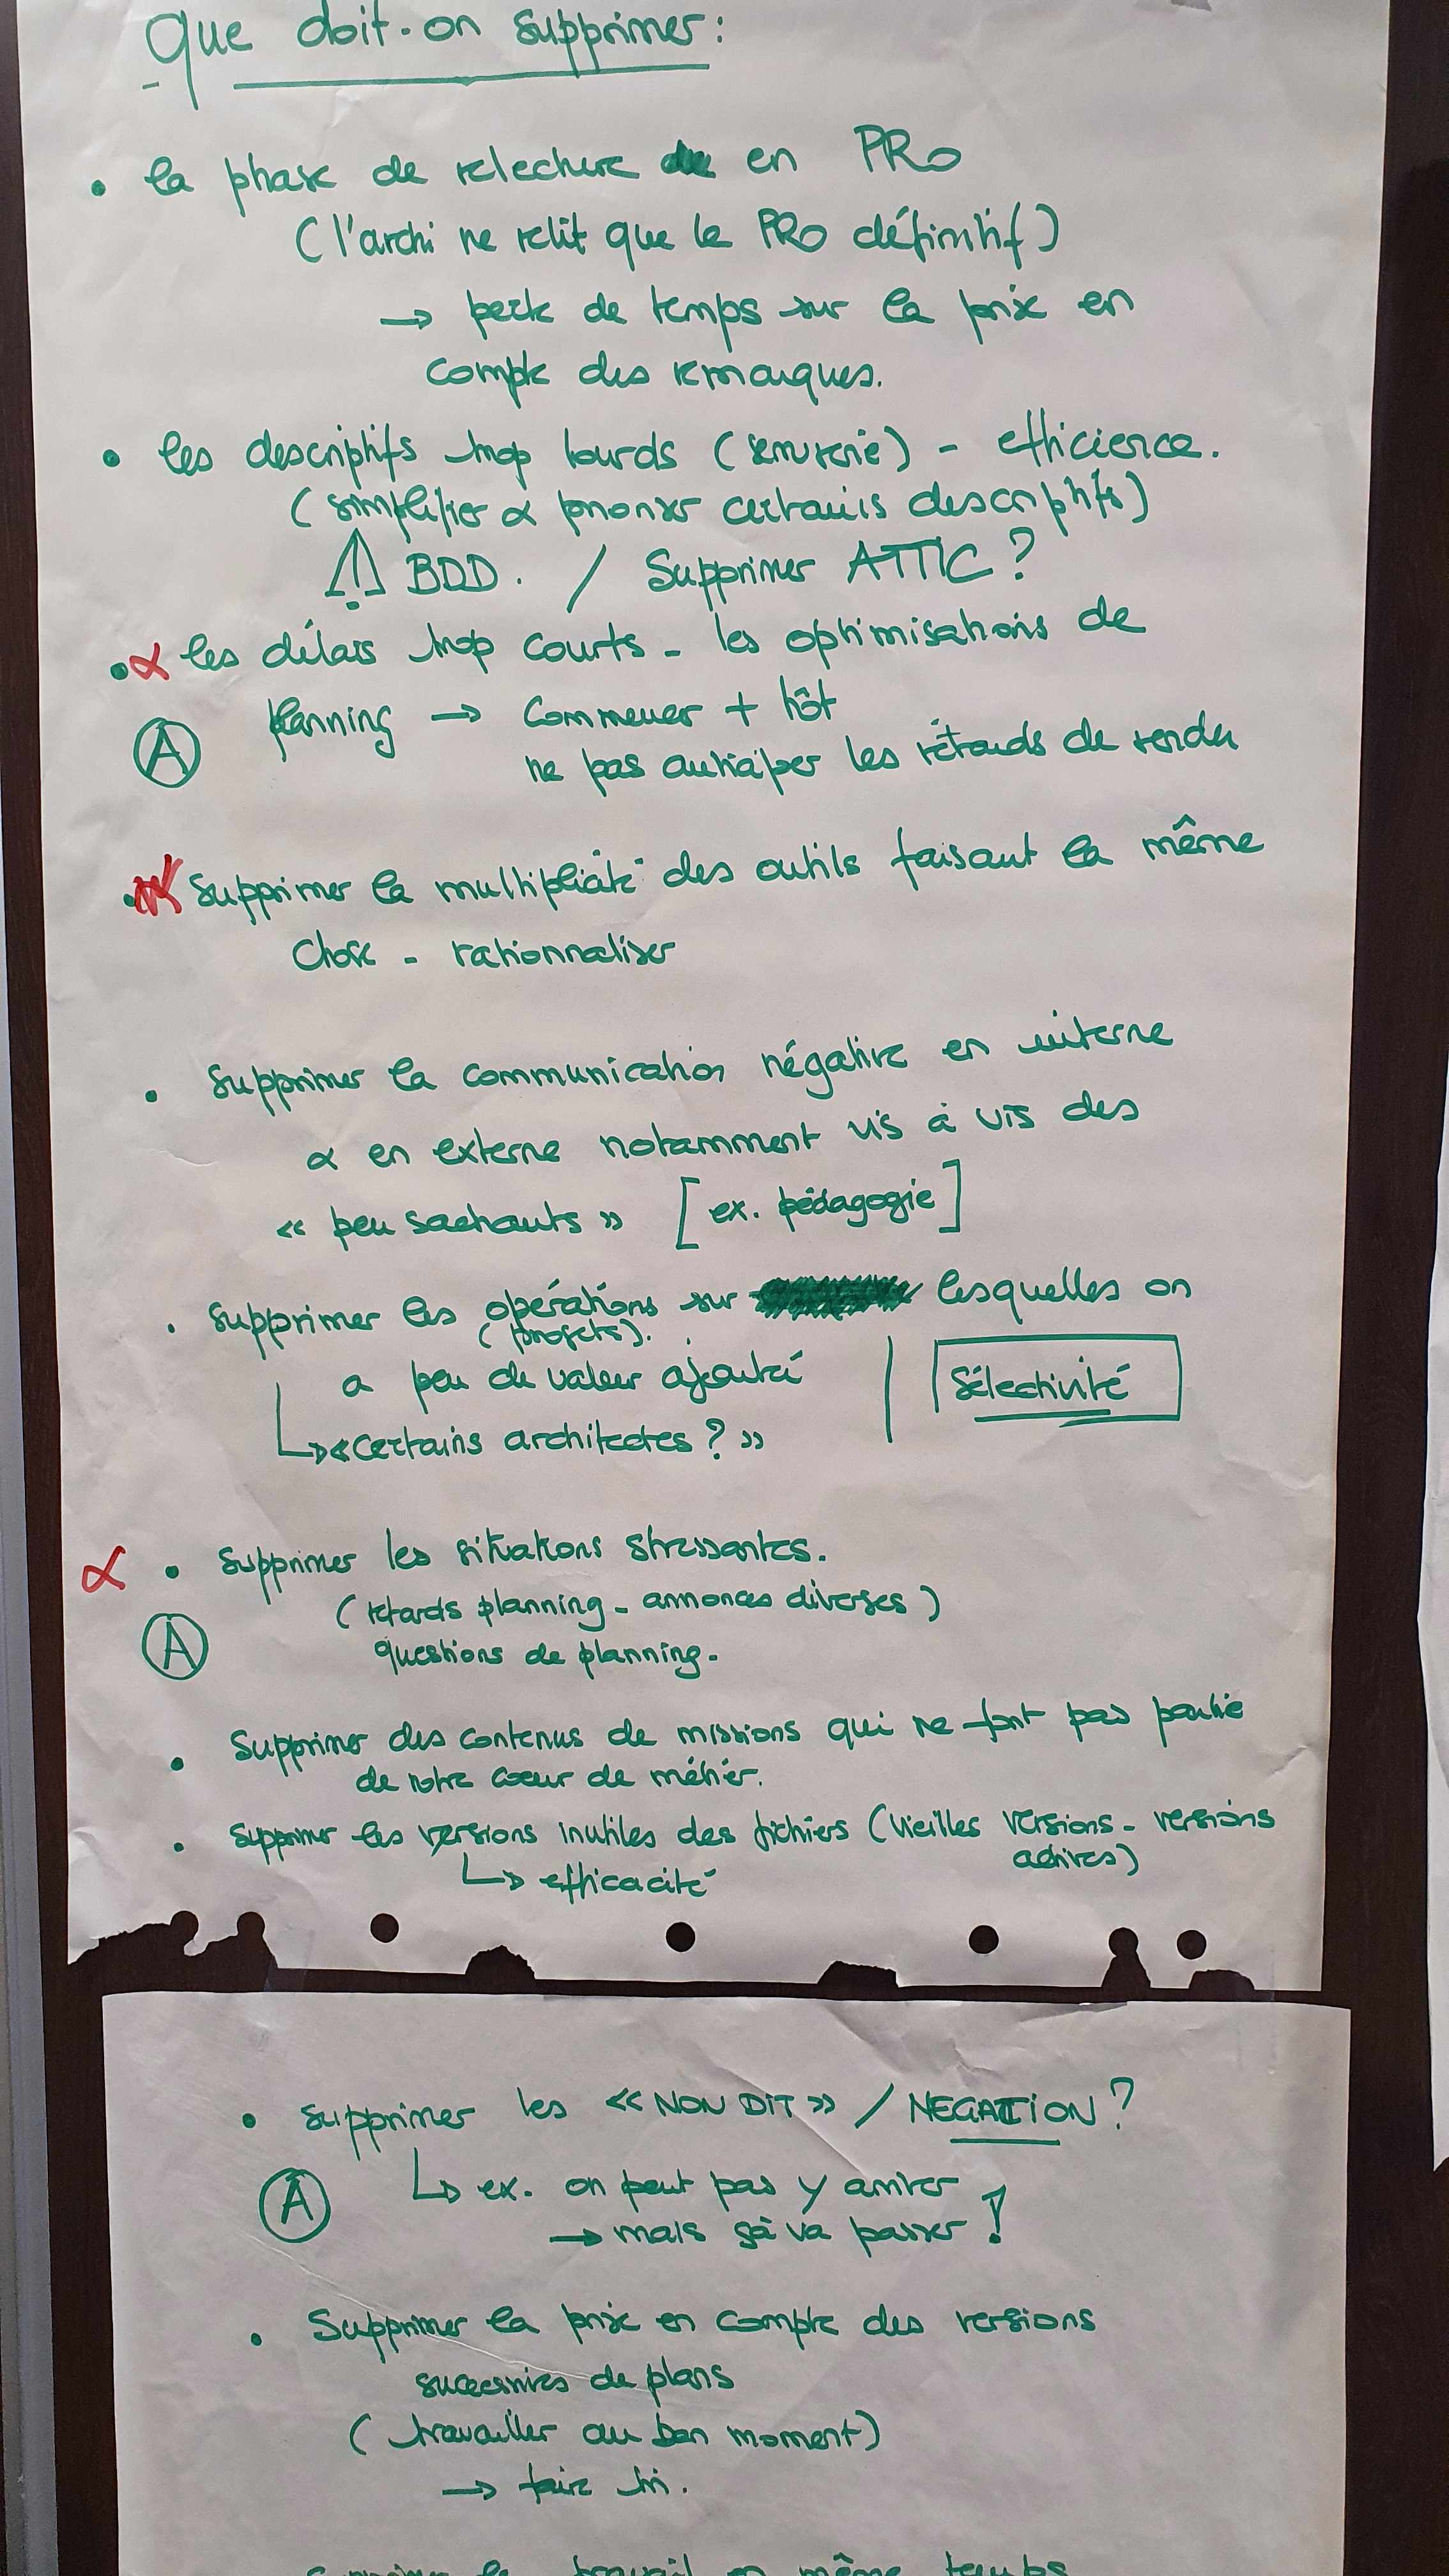 Que doit-on supprimer :
• la phase de relecture en PRO
(l'archi ne relit que le PRO définitif)
→ perte de temps sur la prise en
compte des remarques.
• les descriptifs trop lourds (serrurerie) - efficience.
(simplifier & prioriser certains descriptifs)
⚠ BDD. / Supprimer ATTIC ?
• α les délais trop courts - les optimisations de
planning → Commencer + tôt
Ⓐ
ne pas anticiper les retards de rendu
• Supprimer la multiplicité des outils faisant la même
chose - rationnaliser
• Supprimer la communication négative en interne
& en externe notamment vis à vis des
« peu sachants » [ex. pédagogie]
• Supprimer les opérations sur lesquelles on
(projets).
a peu de valeur ajouté | Sélectivité
↳ « certains architectes ? »
α • Supprimer les situations stressantes.
(retards planning - annonces diverses)
Ⓐ questions de planning.
• Supprimer des contenus de missions qui ne font pas partie
de notre coeur de métier.
• Supprimer les versions inutiles des fichiers (vieilles versions - versions
actives)
↳ efficacité
• Supprimer les « NON DIT » / NEGATION ?
Ⓐ ↳ ex. on peut pas y arriver
→ mais ça va passer !
• Supprimer la prise en compte des versions
successives de plans
(travailler au bon moment)
→ faire tri.
Supprimer le travail en même temps